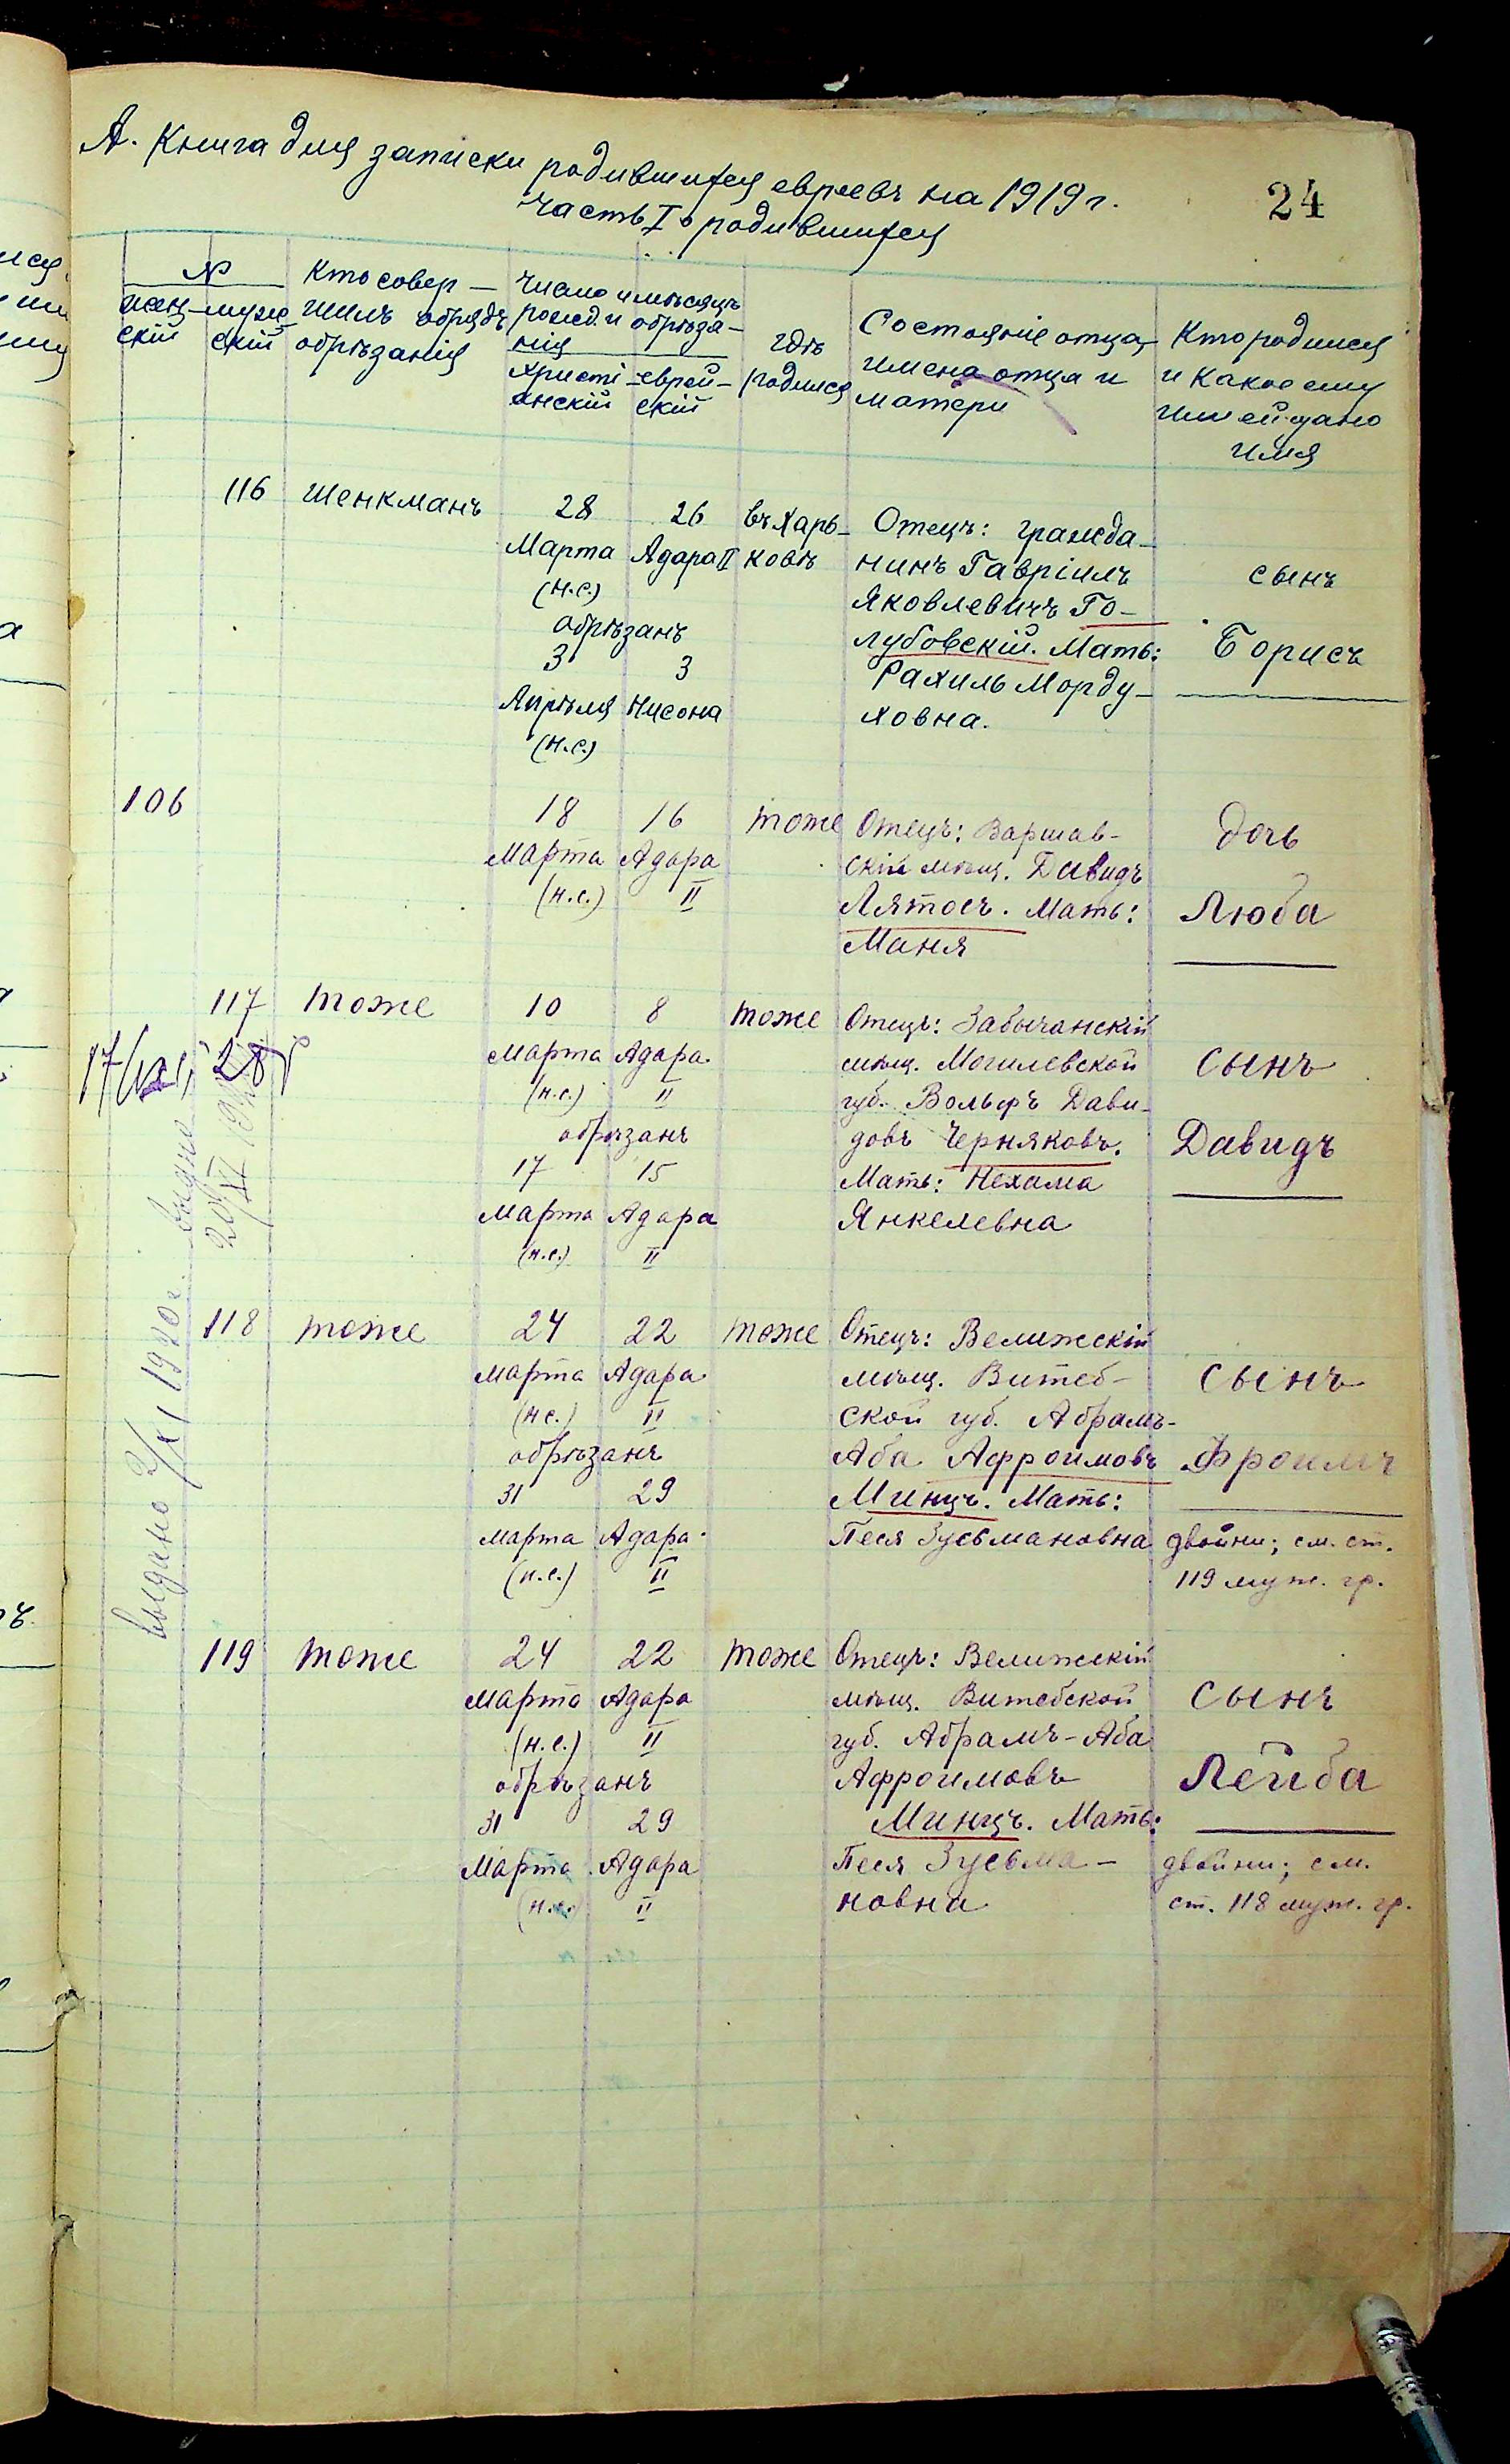 А. Книга для записки родившихся евреевъ на 1919 г.
24
Часть I о родившихся
№
жен-
скій
муж-
скій
Кто совер-
шилъ обрядъ
обрѣзанія
Число и мѣсяцъ
рожд. и обрѣза-
нія
Христі-
анскій
еврей-
скій
Гдѣ
родился
Состояніе отца,
имена отца и
матери
Кто родился
и какое ему
или ей дано
имя
116
Шенкманъ
28
Марта
(н.с.)
26
Адара II
обрѣзанъ
3
Апрѣля
(н.с.)
3
Нисона
въ Харь-
ковѣ
Отецъ: гражда-
нинъ Гавріилъ
Яковлевичъ Го-
лубовскій. Мать:
Рахиль Морду-
ховна.
сынъ
Борисъ
106
18
Марта
(н.с.)
16
Адара
II
тоже
Отецъ: Варшав-
скій мѣщ. Давидъ
Лятосъ. Мать:
Маня
дочь
Люба
117
тоже
10
Марта
(н.с.)
8
Адара
II
обрѣзанъ
17
Марта
(н.с.)
15
Адара
II
тоже
Отецъ: Забычанскій
мѣщ. Могилевской
губ. Вольфъ Дави-
довъ Черняковъ.
Мать: Нехама
Янкелевна
сынъ
Давидъ
118
тоже
24
Марта
(н с.)
22
Адара
II
обрѣзанъ
31
Марта
(н.с.)
29
Адара
II
тоже
Отецъ: Велижскій
мѣщ. Витеб-
ской губ. Абрамъ-
Аба Афроимовъ
Минцъ. Мать:
Песя Зусьмановна
сынъ
Фроимъ
двойни; см. ст.
119 муж. гр.
выдано 1920 г.
119
тоже
24
Марта
(н.с.)
22
Адара
II
обрѣзанъ
31
Марта
(н.с.)
29
Адара
II
тоже
Отецъ: Велижскій
мѣщ. Витебской
губ. Абрамъ-Аба
Афроимовъ
Минцъ. Мать:
Песя Зусьма-
новна
сынъ
Лейба
двойни; см.
ст. 118 муж. гр.